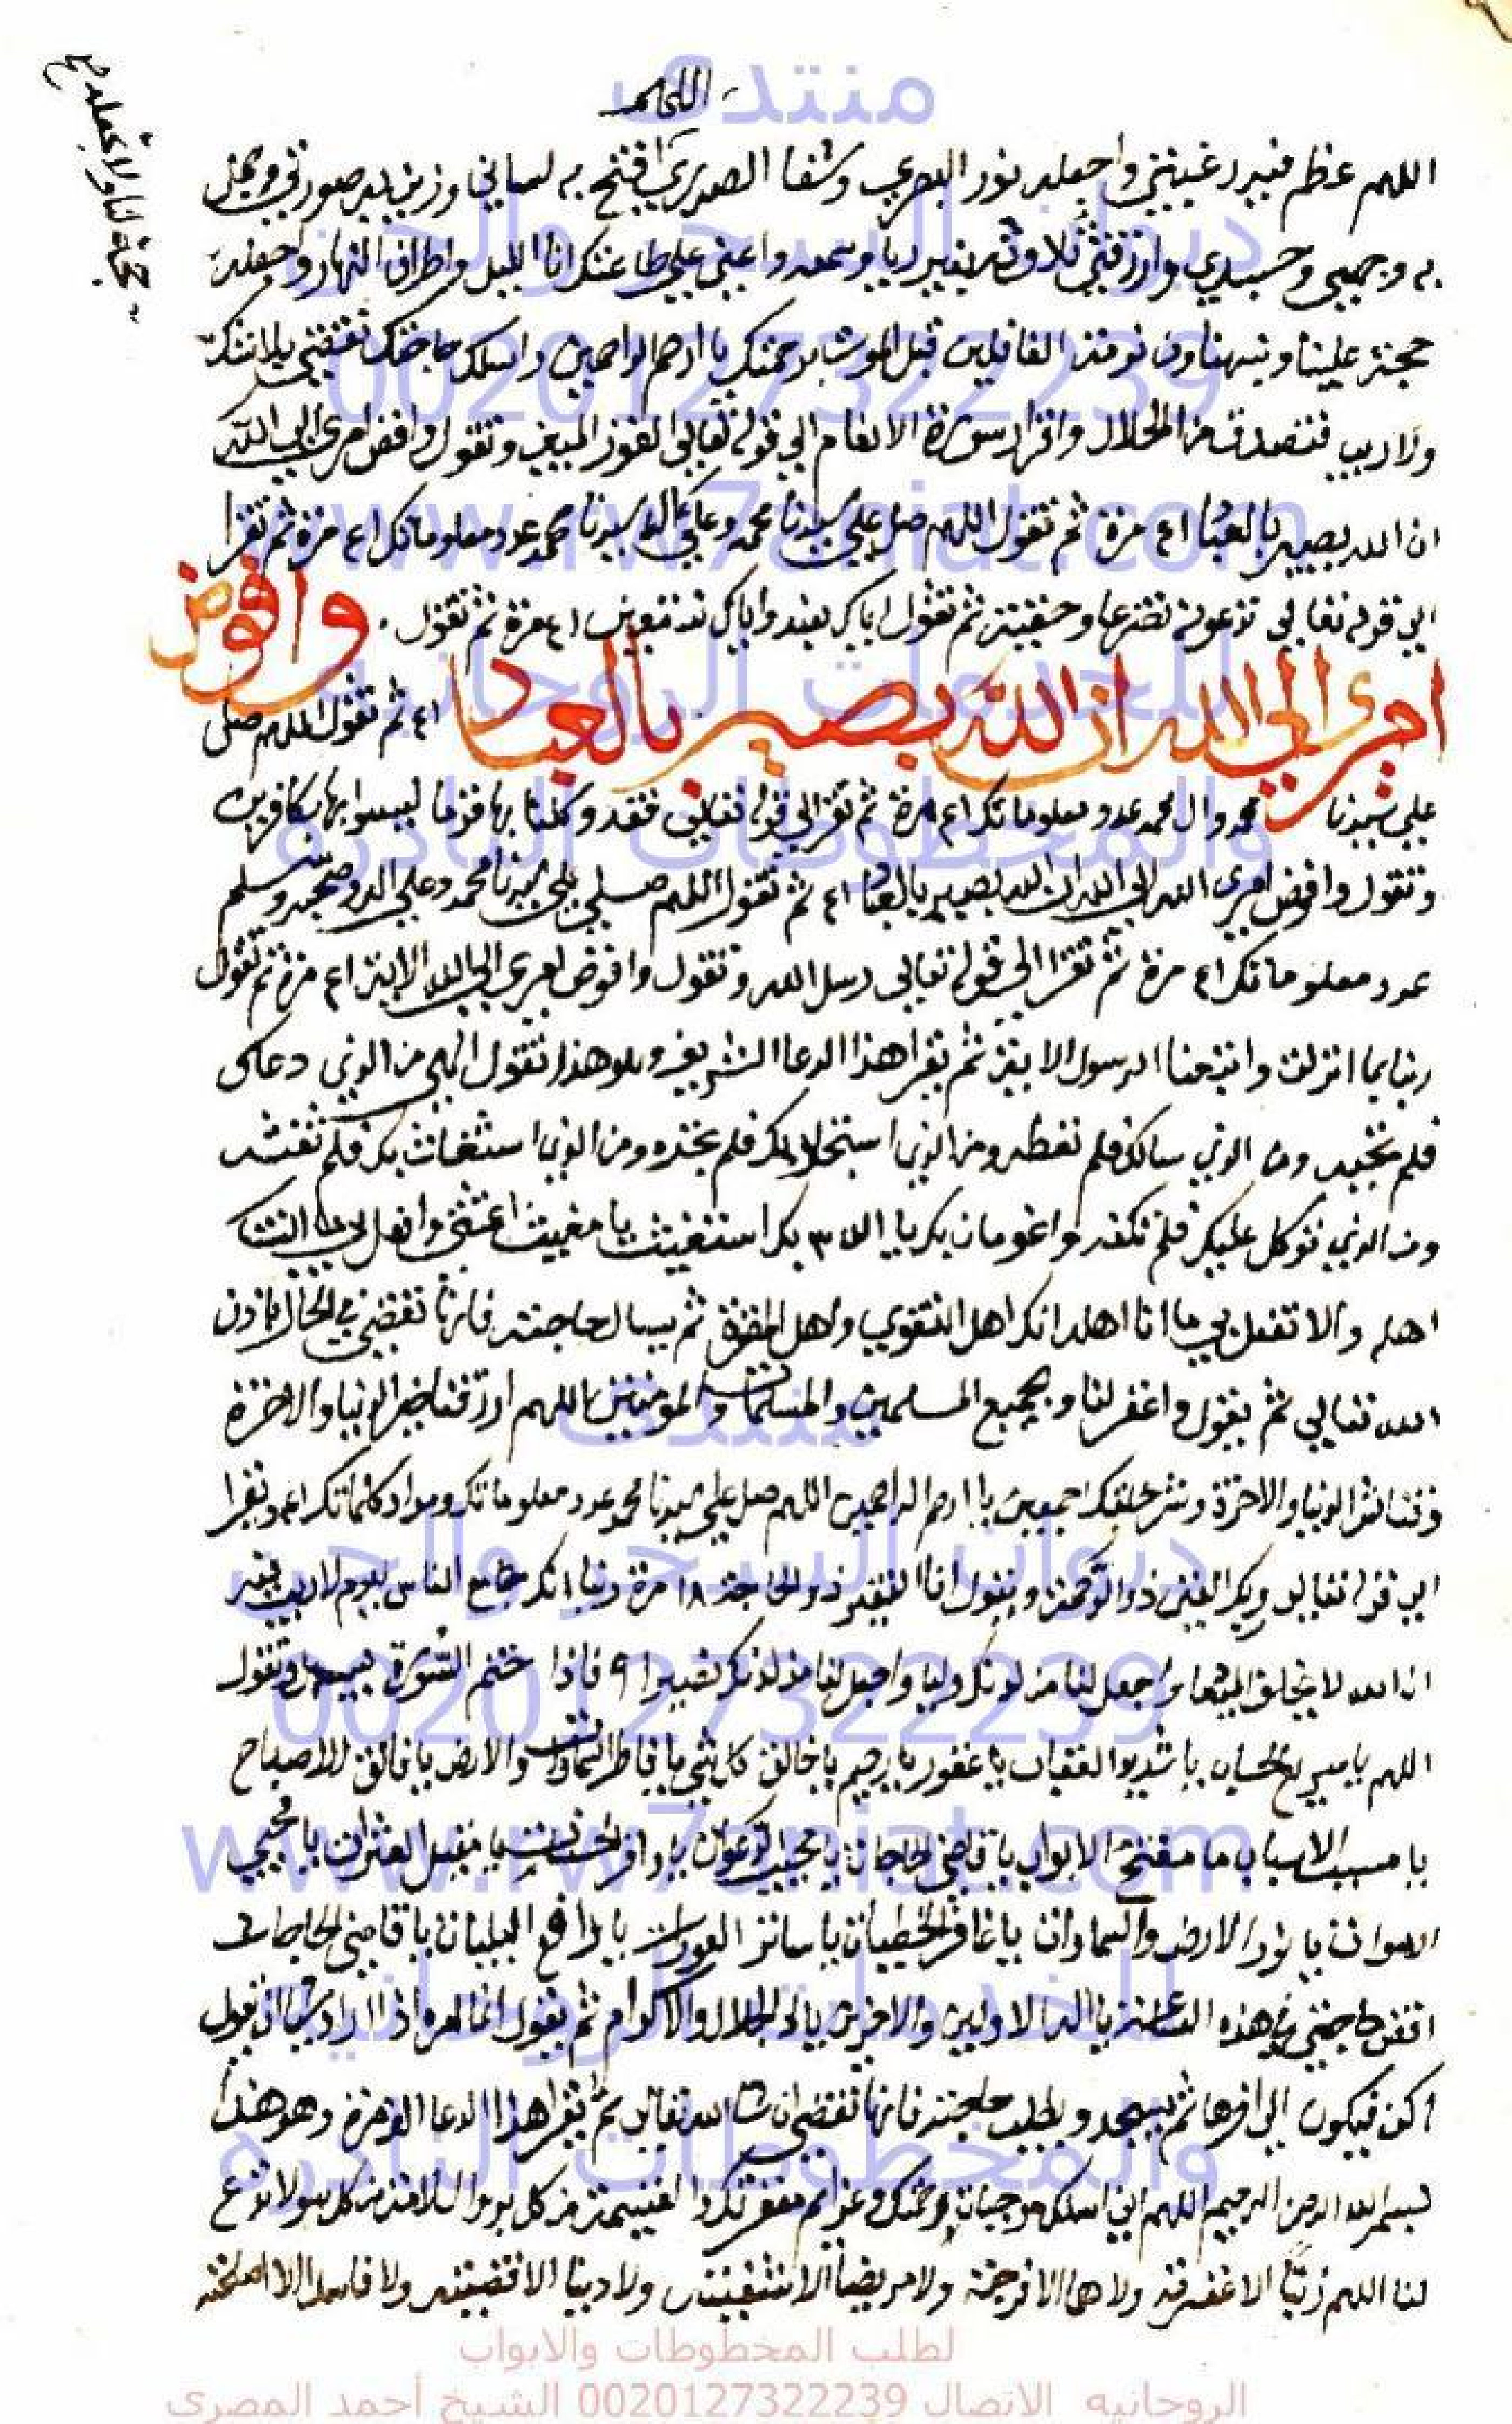 اللهم
اللهم عظم فيه رغبتي واجعله نور البصري وشفا الصدري افتح به لساني وزين به صورتي
به وجهي وجسدي وارزقني تلاوته بغير ريا وسمعه واعني علي طاعتك انا الليل واطراف النهار واجعله
حجته علينا ونبهنا من نومة الغافلين قبل الموت برحمتك يا ارحم الراحمين واسلك حاجتك تقضي
ولا ريب فتصدق من الحلال واقرا سورة الانعام الي قوله تعالي الفوز المبين وتقول وافض امري الي الله
ان الله بصير بالعباد ٤١ مرة ثم تقول اللهم صل علي سيدنا محمد وعلي ال سيدنا محمد عدد معلوماتك ٤١ مرة ثم تقرا
الي قوله تعالي تدعونه تضرعا وخفية ثم تقول اياك نعبد واياك نستعين ٤١ مرة ثم تقول . وافوض
امري الي الله ان الله بصير بالعباد ٤١ ثم تقول اللهم صل
علي سيدنا محمد وال محمد عدد معلوماتك ٤١ مرة ثم تقرا الي قوله تعالي فقد وكلنا بها قوما ليسوا بها بكافرين
وتقول وافوض امري الله الي الله ان الله بصير بالعباد ٤١ ثم تقول اللهم صلي علي سيدنا محمد وعلي اله وصحبه وسلم
عدد معلوماتك ٤١ مرة ثم تقرا الي قوله تعالي رسل الله وتقول وافوض امري الي الله الاية ٤١ مرة ثم تقول
ربنا بما انزلت واتبعنا الرسول الاية ثم يقرا هذا الدعا الشريف وهو هذا تقول الهي من الذي دعاك
فلم تجيبه ومن الذي سالك فلم تعطه ومن الذي استجار بك فلم تجره ومن الذي استغاث بك فلم تغثه
ومن الذي توكل عليك فلم تكفه واغوثاه بك يا الله ٣ بك استغيث يا مغيث اغثني وافعل بي ما انت
اهله ولا تفعل بي ما انا اهله انك اهل التقوي واهل المغفرة ثم يسال حاجته فانها تقضي في الحال باذن
الله تعالي ثم يقول واغفر لنا وجميع المسلمين والمسلمات والمؤمنين اللهم ارزقنا خير الدنيا والاخرة
وقنا شر الدنيا والاخرة وشر خلقك اجمعين يا ارحم الراحمين اللهم صل علي سيدنا محمد عدد معلوماتك ومداد كلماتك ٤١ وتقرا
الي قوله تعالي وربك الغني ذو الرحمة ويقول انا الفقير ذو الحاجة ١٨ مرة ربنا انك جامع الناس ليوم لا ريب فيه
ان الله لا يخلف الميعاد واجعل لنا من لدنك وليا واجعل لنا من لدنك نصيرا ٩ فاذا ختم السورة يسجد وتقول
اللهم يا سريع الحساب يا شديد العقاب يا غفور يا رحيم يا خالق كل شي يا فاطر السماوات والارض يا فالق الاصباح
يا مسبب الاسباب يا مفتح الابواب يا قاضي الحاجات يا مجيب الدعوات يا مقيل العثرات يا محيي
الاموات يا نور الارض والسماوات يا غافر الخطيات يا ساتر العورات يا دافع البليات يا قاضي الحاجات
اقض حاجتي في هذه الساعة يا اله الاولين والاخرين يا ذا الجلال والاكرام ثم يقول انما امره اذا اراد شيا ان يقول
كن فيكون الي اخرها ثم يسجد ويطلب حاجته فانها تقضي ان شا الله تعالي ثم يقرا هذا الدعا مرة وهو هذا
بسم الله الرحمن الرحيم اللهم اني اسلك موجبات رحمتك وعزايم مغفرتك والغنيمة من كل بر والسلامة من كل سو لا تدع
لنا اللهم ذنبا الا غفرته ولا هما الا فرجته ولا مريضا الا شفيته ولا دينا الا قضيته ولا فاسدا الا اصلحته
منتدى
ديوان السحر والجن
0020127322239
www.rw7aniat.com
للخدمات الروحانية
والمخطوطات النادرة
منتدى
ديوان السحر والجن
0020127322239
www.rw7aniat.com
للخدمات الروحانية
والمخطوطات النادرة
لطلب المخطوطات والابواب
الروحانيه الاتصال 0020127322239 الشيخ أحمد المصرى